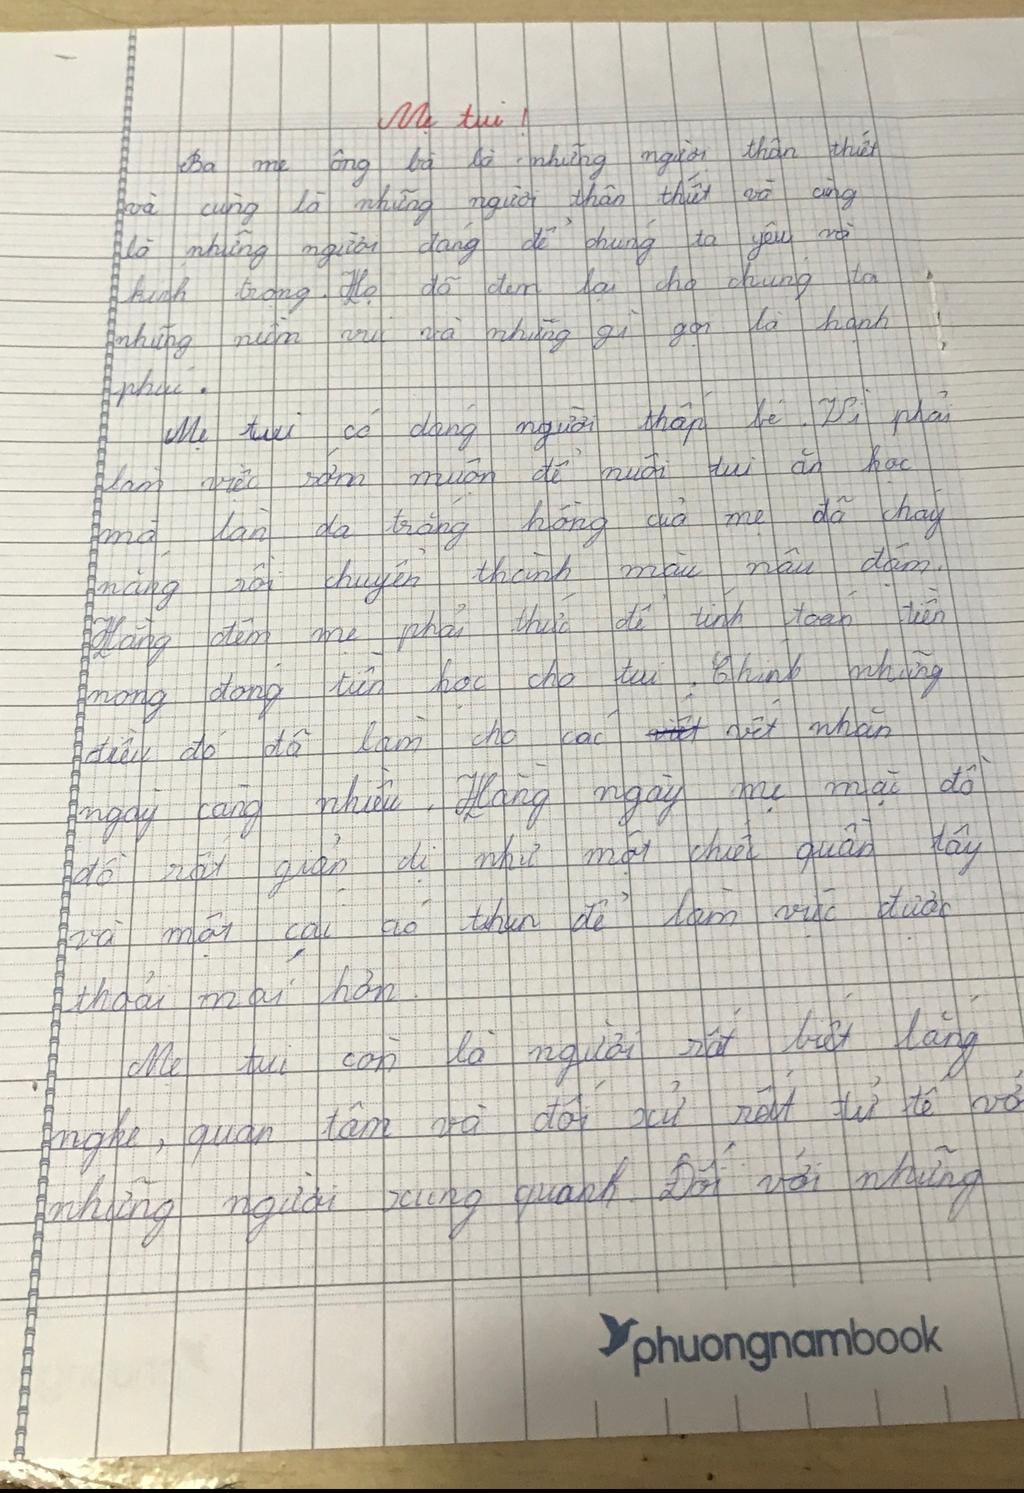 Mẹ tui !
Ba mẹ ông bà là những người thân thiết
và cũng là những người thân thiết và cũng
là những người đáng để chúng ta yêu và
kính trọng. Họ đã đem lại cho chúng ta
những niềm vui và những gì gọi là hạnh
phúc.
Mẹ tui có dáng người thấp bé. Vì phải
làm việc sớm muộn để nuôi tui ăn học
mà làn da trắng hồng của mẹ đã cháy
nắng rồi chuyển thành màu nâu đậm.
Hằng đêm mẹ phải thức để tính toán tiền
mong đóng tiền học cho tui. Chính những
điều đó đã làm cho các vết nhăn
ngày càng nhiều. Hằng ngày mẹ mặc đồ
đồ rất giản dị như một chiếc quần tây
và một cái áo thun để làm việc được
thoải mái hơn.
Mẹ tui còn là người rất biết lắng
nghe, quan tâm và đối xử rất tử tế với
những người xung quanh. Đối với những
phuongnambook